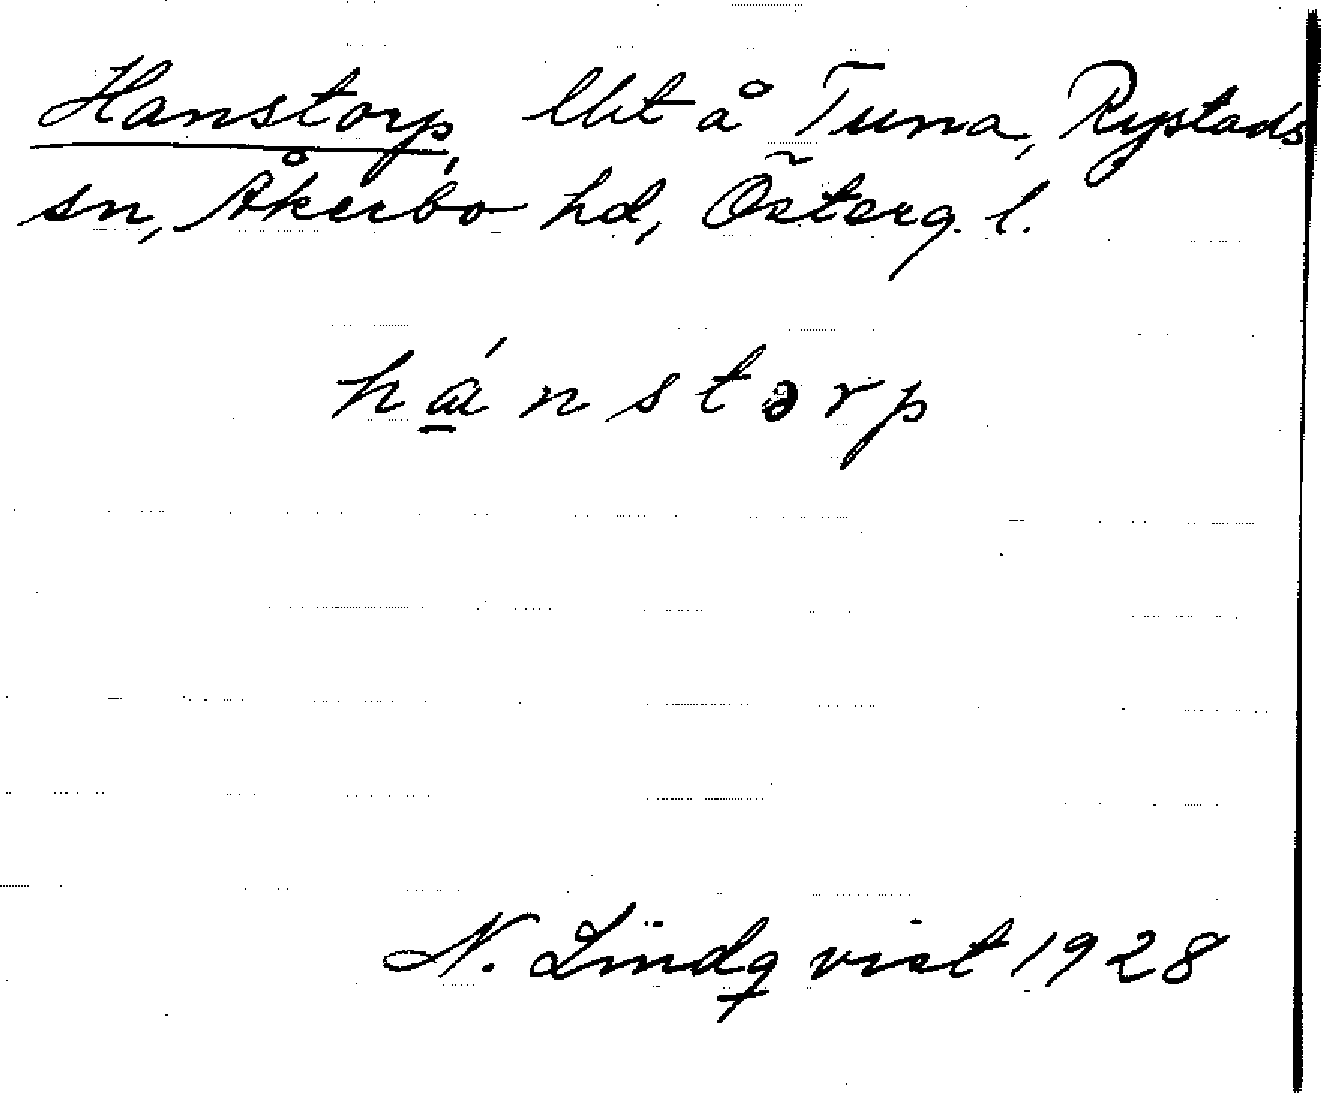 Hanstorp, lht å Tuna, Rystads
sn, Åkerbo hd, Österg. l.
hánstərp
N. Lindqvist 1928